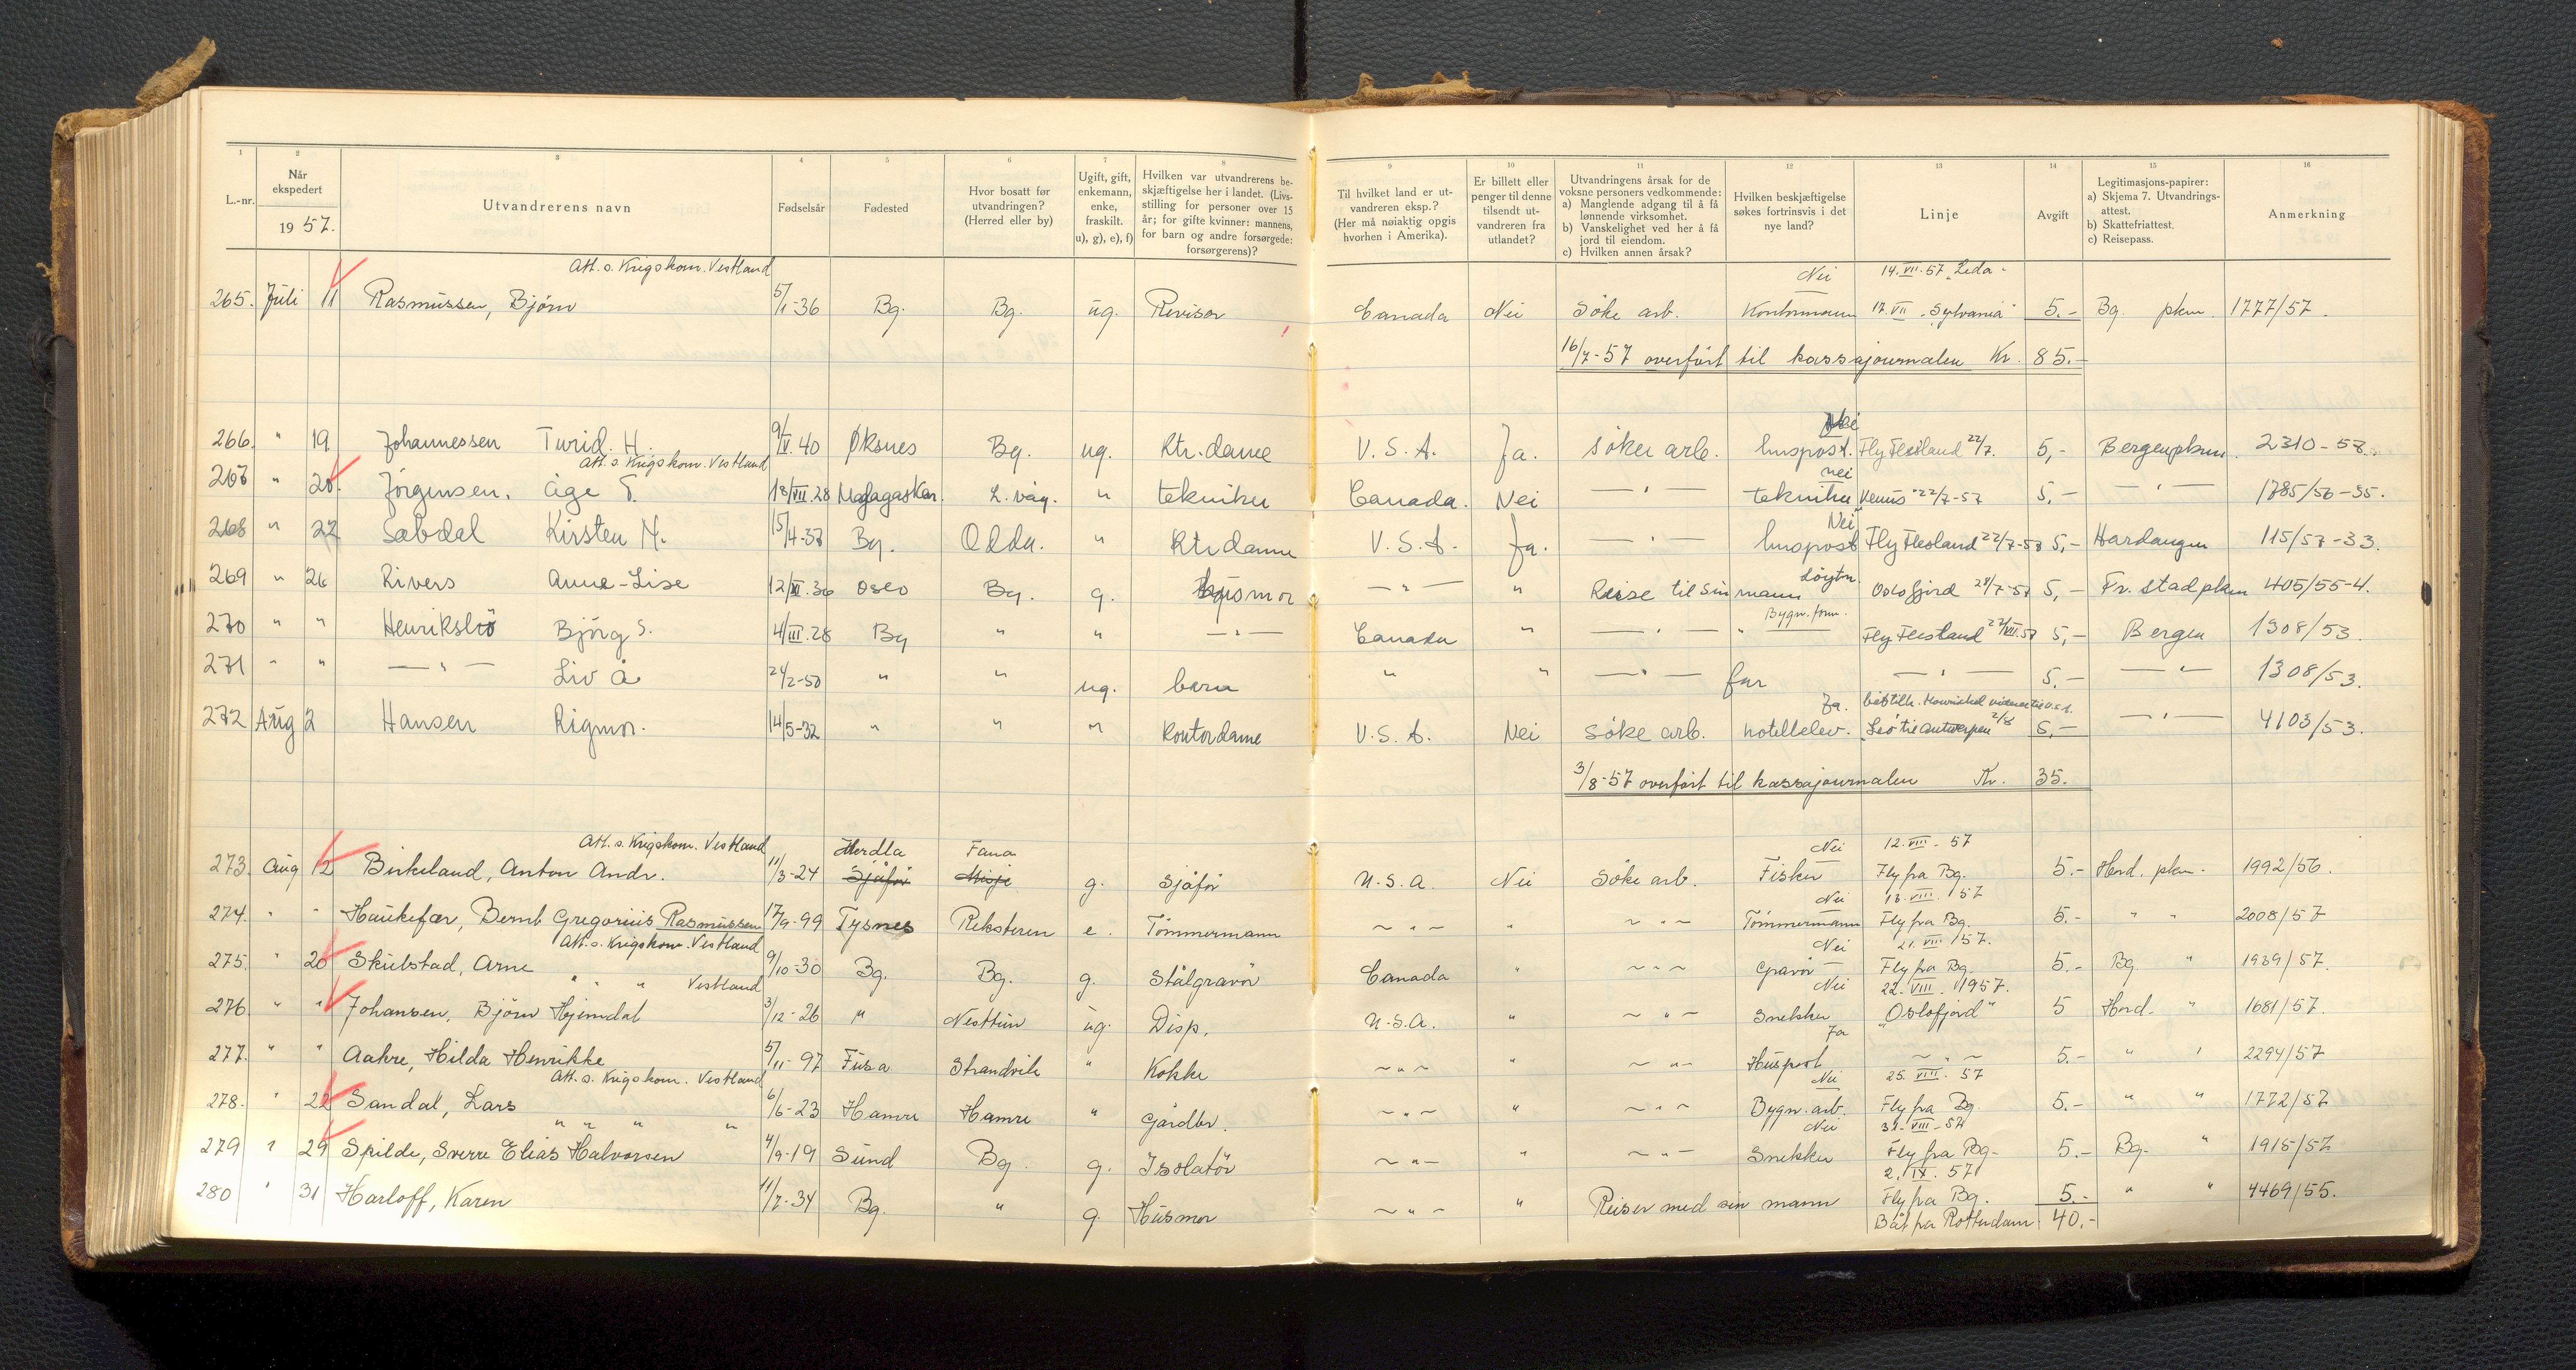 1 2 3 4 5 6 7 8 9 10 11 12 13 14 15 16
L.-nr. | Når ekspedert 1957. | Utvandrerens navn | Fødselsår | Fødested | Hvor bosatt før utvandringen? (Herred eller by) | Ugift, gift, enkemann, enke, fraskilt. u), g), e), f) | Hvilken var utvandrerens beskjæftigelse her i landet. (Livsstilling for personer over 15 år; for gifte kvinner: mannens, for barn og andre forsørgede: forsørgerens)? | Til hvilket land er utvandreren eksp.? (Her må nøiaktig opgis hvorhen i Amerika). | Er billett eller penger til denne tilsendt utvandreren fra utlandet? | Utvandringens årsak for de voksne personers vedkommende: a) Manglende adgang til å få lønnende virksomhet. b) Vanskelighet ved her å få jord til eiendom. c) Hvilken annen årsak? | Hvilken beskjæftigelse søkes fortrinsvis i det nye land? | Linje | Avgift | Legitimasjons-papirer: a) Skjema 7. Utvandringsattest. b) Skattefriattest. c) Reisepass. | Anmerkning
Att. s. Krigskom. Vestland Nei 14.VII.57 "Leda"
265. Juli 11 Rasmussen, Bjørn 5/1-36 Bg. Bg. ug. Revisor Canada Nei Søke arb. Kontormann 17.VII "Sylvania" 5.- Bg. pkm. 1777/57.
16/7-57 overført til kassajournalen Kr. 85.-
266. " 19 Johannessen Turid. H. 9/V.40 Øksnes Bg. ug. Ktr.dame U.S.A. Ja. søker arb. huspost. Fly Flesland 22/7. 5,- Bergen pkm. 2310-53.
Att. s. Krigskom. Vestland nei
267 " 20. Jørgensen. Åge T. 18/VII.28 Madagaskar. L.våg. " tekniker Canada. Nei — " — tekniker "Venus" 22/7-57 5,- — " — 1785/56-35.
Nei
268 " 22 Sæbdal Kirsten M. 15/4-37 Bg. Odda. " Ktr dame U.S.A. Ja. — " — huspost Fly Flesland 22/7-57 5,- Hardanger 115/57-33.
Løytn.
269 " 26 Rivers Anne-Lise 12/XI.36 Oslo Bg. g. husmor — " — " Reise til sin mann Oslofjord 28/7-57 5,- Fr.stad pkm 405/55-4.
Bygn.form.
270 " " Henriksbø Bjørg S. 4/III.28 Bg " " — " — Canada " — " — " — Fly Flesland 27/VII.57 5,- Bergen 1308/53.
271 " " — " — Liv Å 24/2-50 " " ug. barn " " — " — far — " — 5.- — " — 1308/53.
Ja.
272 Aug 2 Hansen Rigmor. 14/5-32 " " " Kontordame U.S.A. Nei søke arb. hotellelev. "Leo" til Antwerpen 2/8 5,- — " — 4103/53.
3/8-57 overført til kassajournalen Kr. 35.
Att. s. Krigskom. Vestland Herdla Fana Nei 12.VIII-57
273. Aug 12 Birkeland, Anton Andr. 11/3-24 Sjåfør Misje g. Sjåfør U.S.A. Nei Søke arb. Fisker Fly fra Bg. 5.- Hord. pkm. 1992/56.
Nei 13.VIII.157
274. " " Haukefær, Bernt Gregorius Rasmussen 17/9-99 Tysnes Reksteren e. Tømmermann ~ " ~ " ~ " ~ Tømmermann Fly fra Bg. 5.- " " 2008/57
Att. s. Krigskom. Vestland Nei 21.VIII.157.
275. " 20 Skulstad, Arne 9/10-30 Bg. Bg. g. Stålgravør Canada " ~ " ~ Gravør Fly fra Bg. 5.- Bg " 1939/57.
" " " Vestland Nei 22.VIII.1957.
276. " " Johansen, Bjørn Hjemdal 3/12-26 " Nesttun ug. Disp. U.S.A. " ~ " ~ Snekker "Oslofjord" 5 Hord. " 1681/57.
Ja
277. " " Aakre, Hilda Henrikke 5/11-97 Fusa Strandvik " Kokke ~ " ~ " ~ " ~ Huspost ~ " ~ 5.- " " 2294/57
Att. s. Krigskom. Vestland Nei 25.VIII.57
278. " 22 Sandal, Lars 6/6-23 Hamre Hamre " Gårdbr. ~ " ~ " ~ " ~ Bygn.arb. Fly fra Bg. 5.- " " 1772/57
" " " " Nei 31.VIII-57
279 " 29 Spilde, Sverre Elias Halvorsen 4/9-19 Sund Bg. g. Isolatør ~ " ~ " ~ " ~ Snekker Fly fra Bg. 5.- Bg. " 1915/57
2.IX.57
280 " 31 Harloff, Karen 11/7-34 Bg. " g. Husmor ~ " ~ " Reiser med sin mann Fly fra Bg. 5.- " " 4469/55.
Båt fra Rotterdam 40.-